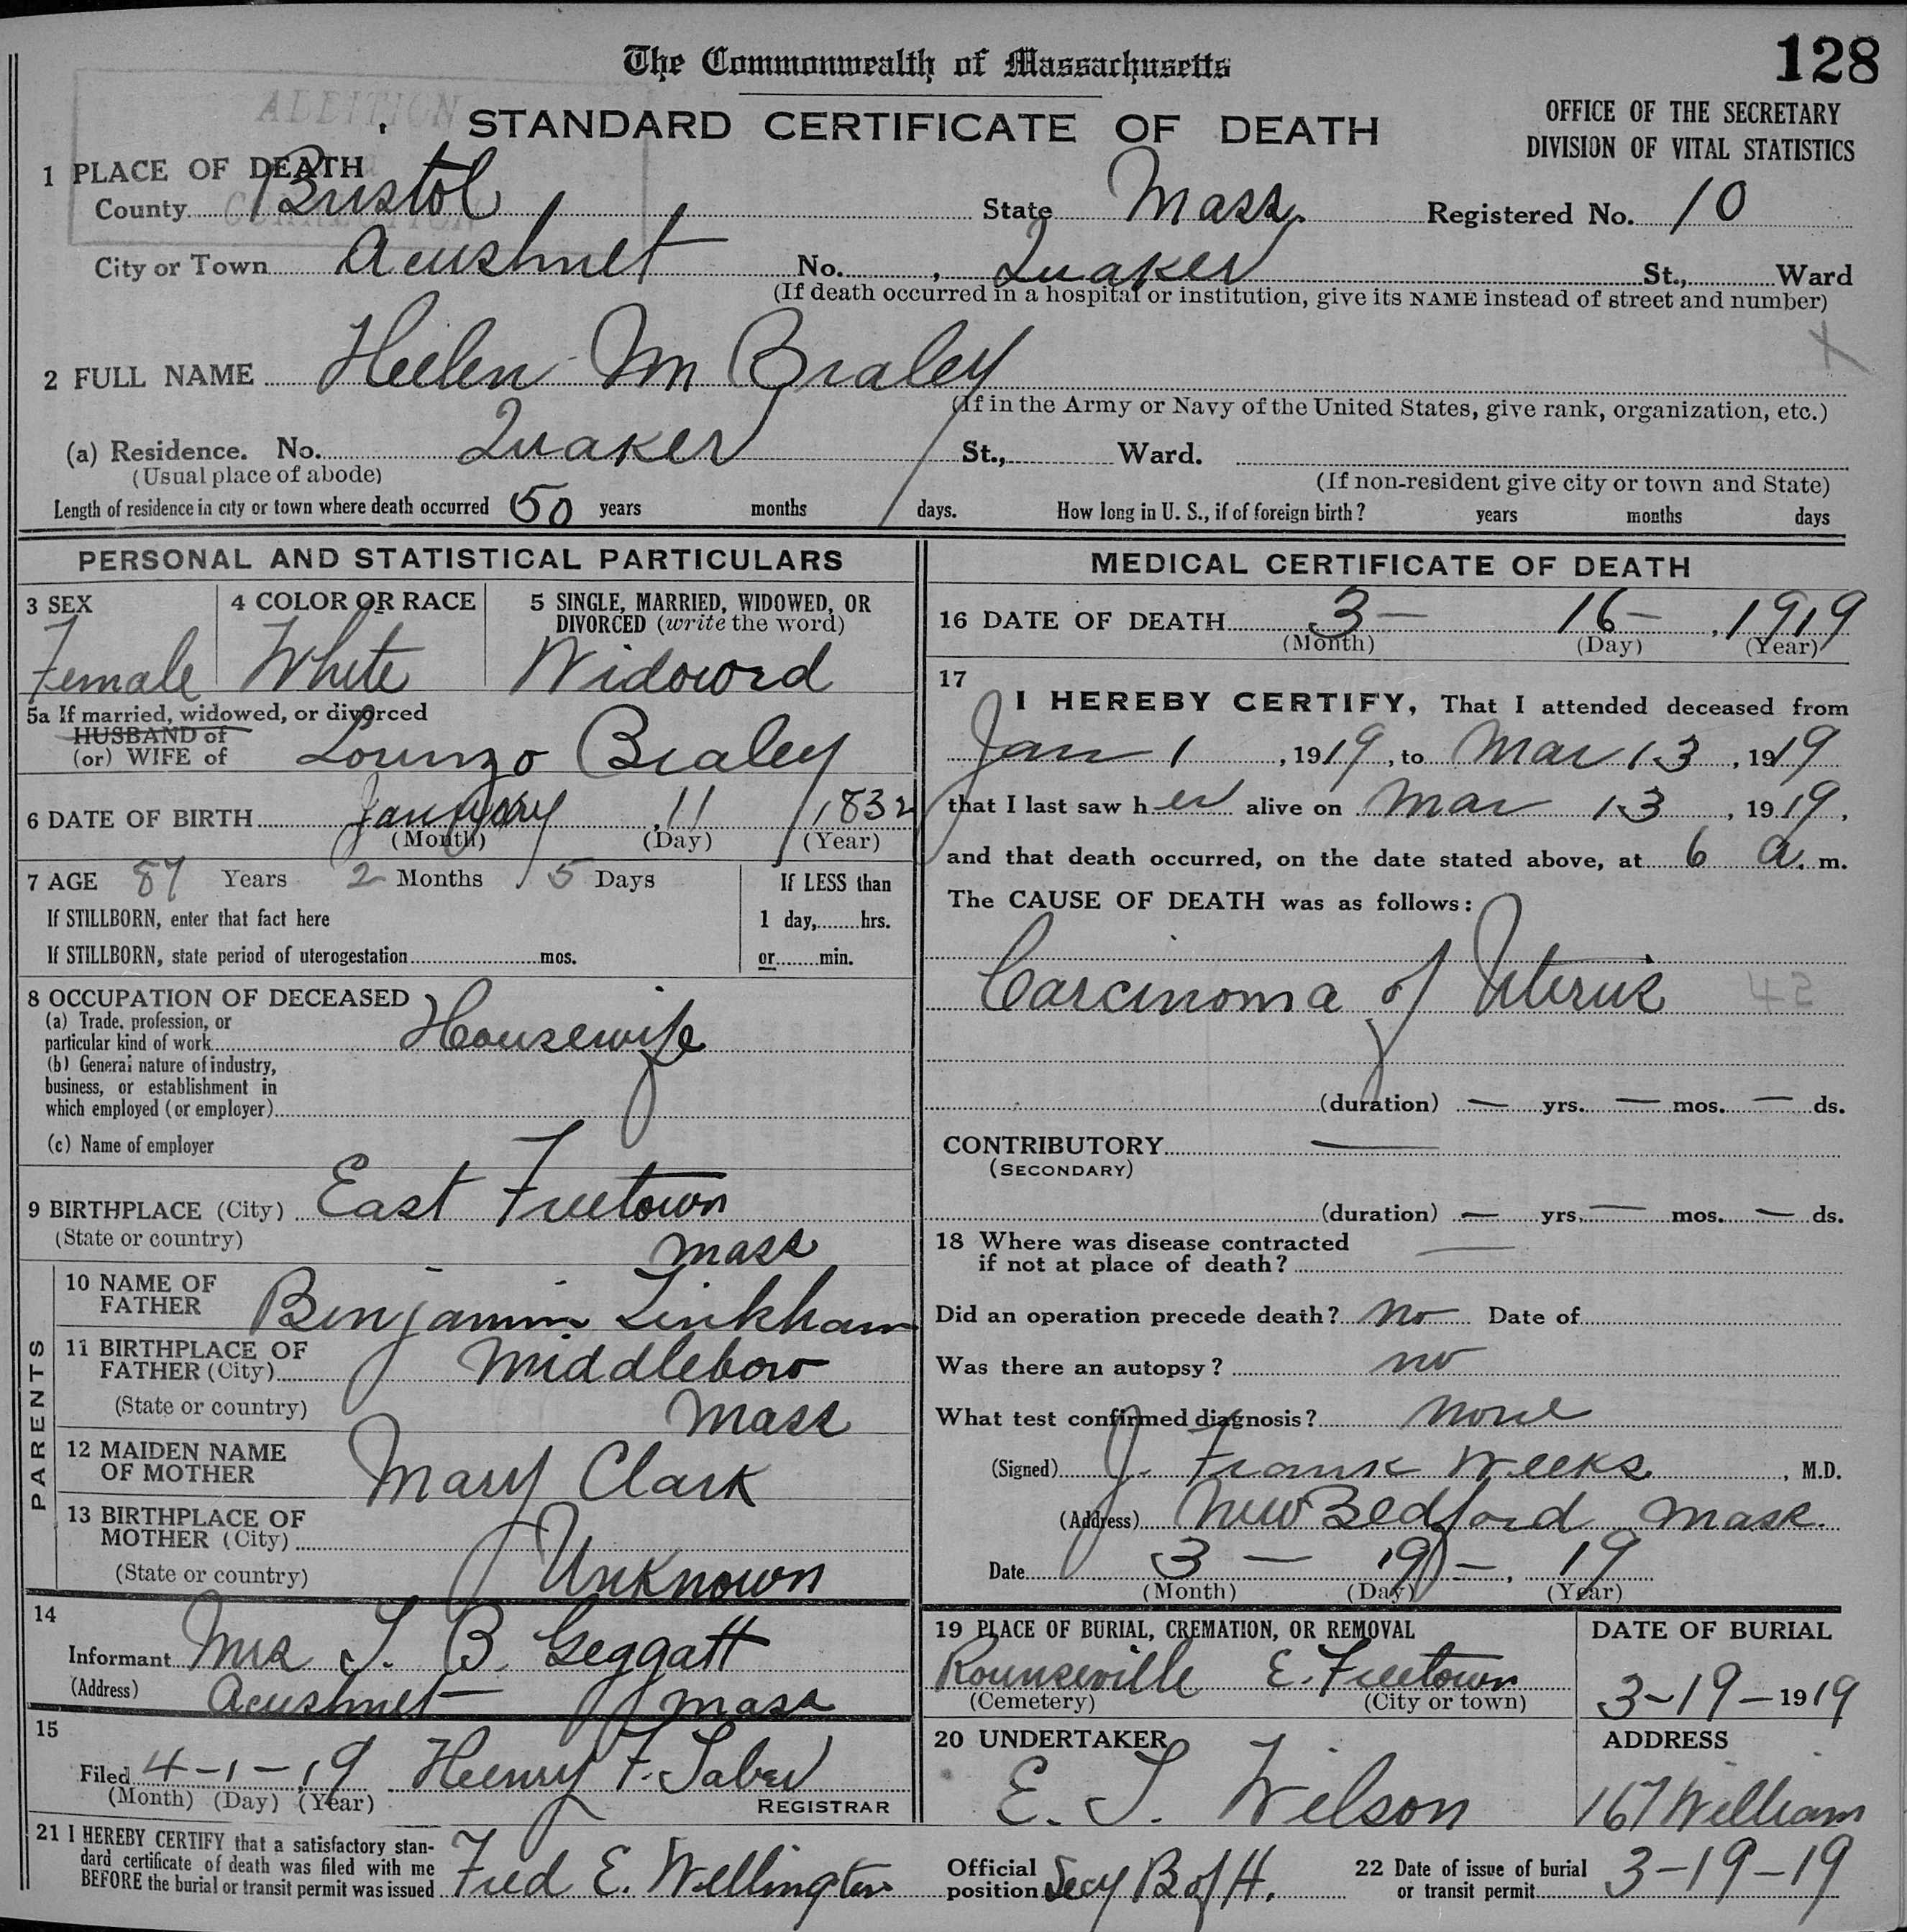 128
The Commonwealth of Massachusetts
ADDITION
STANDARD CERTIFICATE OF DEATH
OFFICE OF THE SECRETARY
DIVISION OF VITAL STATISTICS
1 PLACE OF DEATH
County Bristol State Mass. Registered No. 10
City or Town Acushnet No. , Quaker St., Ward
(If death occurred in a hospital or institution, give its NAME instead of street and number)
2 FULL NAME Helen M Braley
(If in the Army or Navy of the United States, give rank, organization, etc.)
(a) Residence. No. Quaker St., Ward.
(Usual place of abode) (If non-resident give city or town and State)
Length of residence in city or town where death occurred 50 years months days. How long in U. S., if of foreign birth? years months days
PERSONAL AND STATISTICAL PARTICULARS
3 SEX
Female
4 COLOR OR RACE
White
5 SINGLE, MARRIED, WIDOWED, OR
DIVORCED (write the word)
Widowed
5a If married, widowed, or divorced
HUSBAND of
(or) WIFE of Lorenzo Braley
6 DATE OF BIRTH January 11 1832
(Month) (Day) (Year)
7 AGE 87 Years 2 Months 5 Days
If STILLBORN, enter that fact here
If STILLBORN, state period of uterogestation mos.
If LESS than
1 day, hrs.
or min.
8 OCCUPATION OF DECEASED
(a) Trade, profession, or
particular kind of work Housewife
(b) General nature of industry,
business, or establishment in
which employed (or employer)
(c) Name of employer
9 BIRTHPLACE (City) East Freetown
(State or country) Mass
PARENTS
10 NAME OF
FATHER Benjamin Linkham
11 BIRTHPLACE OF
FATHER (City) Middleboro
(State or country) Mass
12 MAIDEN NAME
OF MOTHER Mary Clark
13 BIRTHPLACE OF
MOTHER (City)
(State or country) Unknown
14
Informant Mrs S. B. Geggatt
(Address) Acushnet Mass
15
Filed 4-1-19 Henry F. Taber
(Month) (Day) (Year) REGISTRAR
MEDICAL CERTIFICATE OF DEATH
16 DATE OF DEATH 3 — 16 — , 1919
(Month) (Day) (Year)
17
I HEREBY CERTIFY, That I attended deceased from
Jan 1 , 1919, to Mar 13 , 1919
that I last saw her alive on Mar 13 , 1919,
and that death occurred, on the date stated above, at 6 a. m.
The CAUSE OF DEATH was as follows:
Carcinoma of Uterus 42
(duration) — yrs. — mos. — ds.
CONTRIBUTORY —
(SECONDARY)
(duration) — yrs. — mos. — ds.
18 Where was disease contracted
if not at place of death? —
Did an operation precede death? No Date of
Was there an autopsy? no
What test confirmed diagnosis? None
(Signed) J. Frank Weeks , M.D.
(Address) New Bedford Mass.
Date 3 — 19 — , 19
(Month) (Day) (Year)
19 PLACE OF BURIAL, CREMATION, OR REMOVAL
Rounseville E. Freetown
(Cemetery) (City or town)
DATE OF BURIAL
3-19-1919
20 UNDERTAKER
E. S. Wilson
ADDRESS
167 William
21 I HEREBY CERTIFY that a satisfactory stan-
dard certificate of death was filed with me
BEFORE the burial or transit permit was issued Fred E. Wellington
Official
position Secy B of H.
22 Date of issue of burial
or transit permit 3-19-19